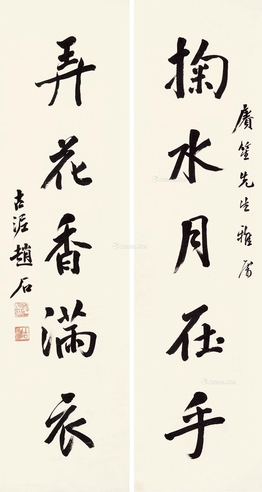 賡笙先生雅屬
掬水月在手
弄花香滿衣
古泥趙石